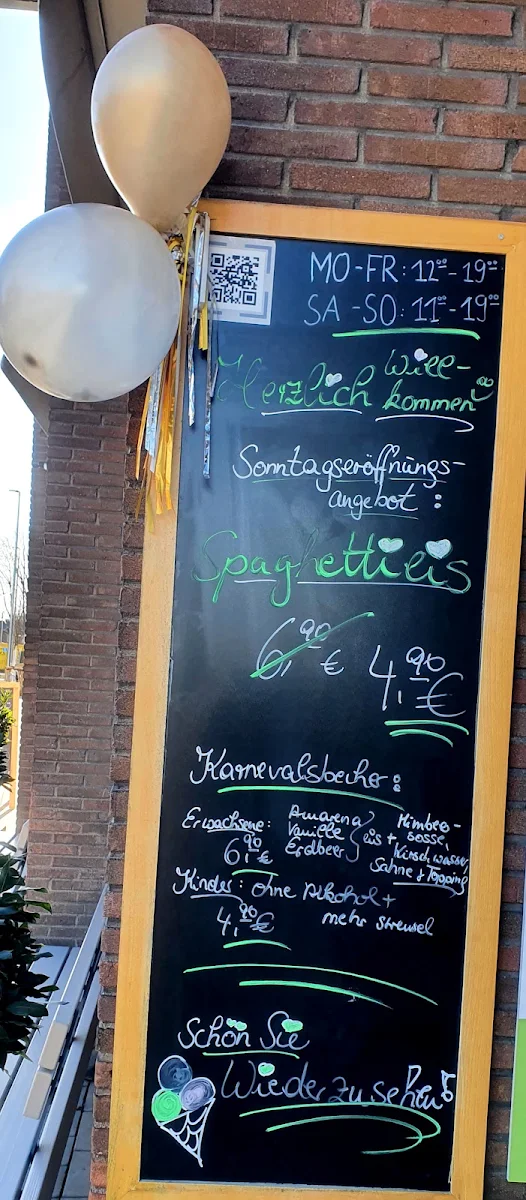 MO-FR: 12⁰⁰-19⁰⁰
SA-SO: 11⁰⁰-19⁰⁰
Herzlich Will-
kommen
Sonntagseröffnungs-
angebot:
Spaghettieis
6,90 €
4,90 €
Karnevalsbecher:
Erwachsene: Amarena Vanille Erdbeer eis + Himbeer-
sosse, Kirschwasser,
Sahne + Topping
6,90 €
Kinder: ohne Alkohol +
mehr Streusel
4,90 €
Schön Sie
Wiederzusehen!